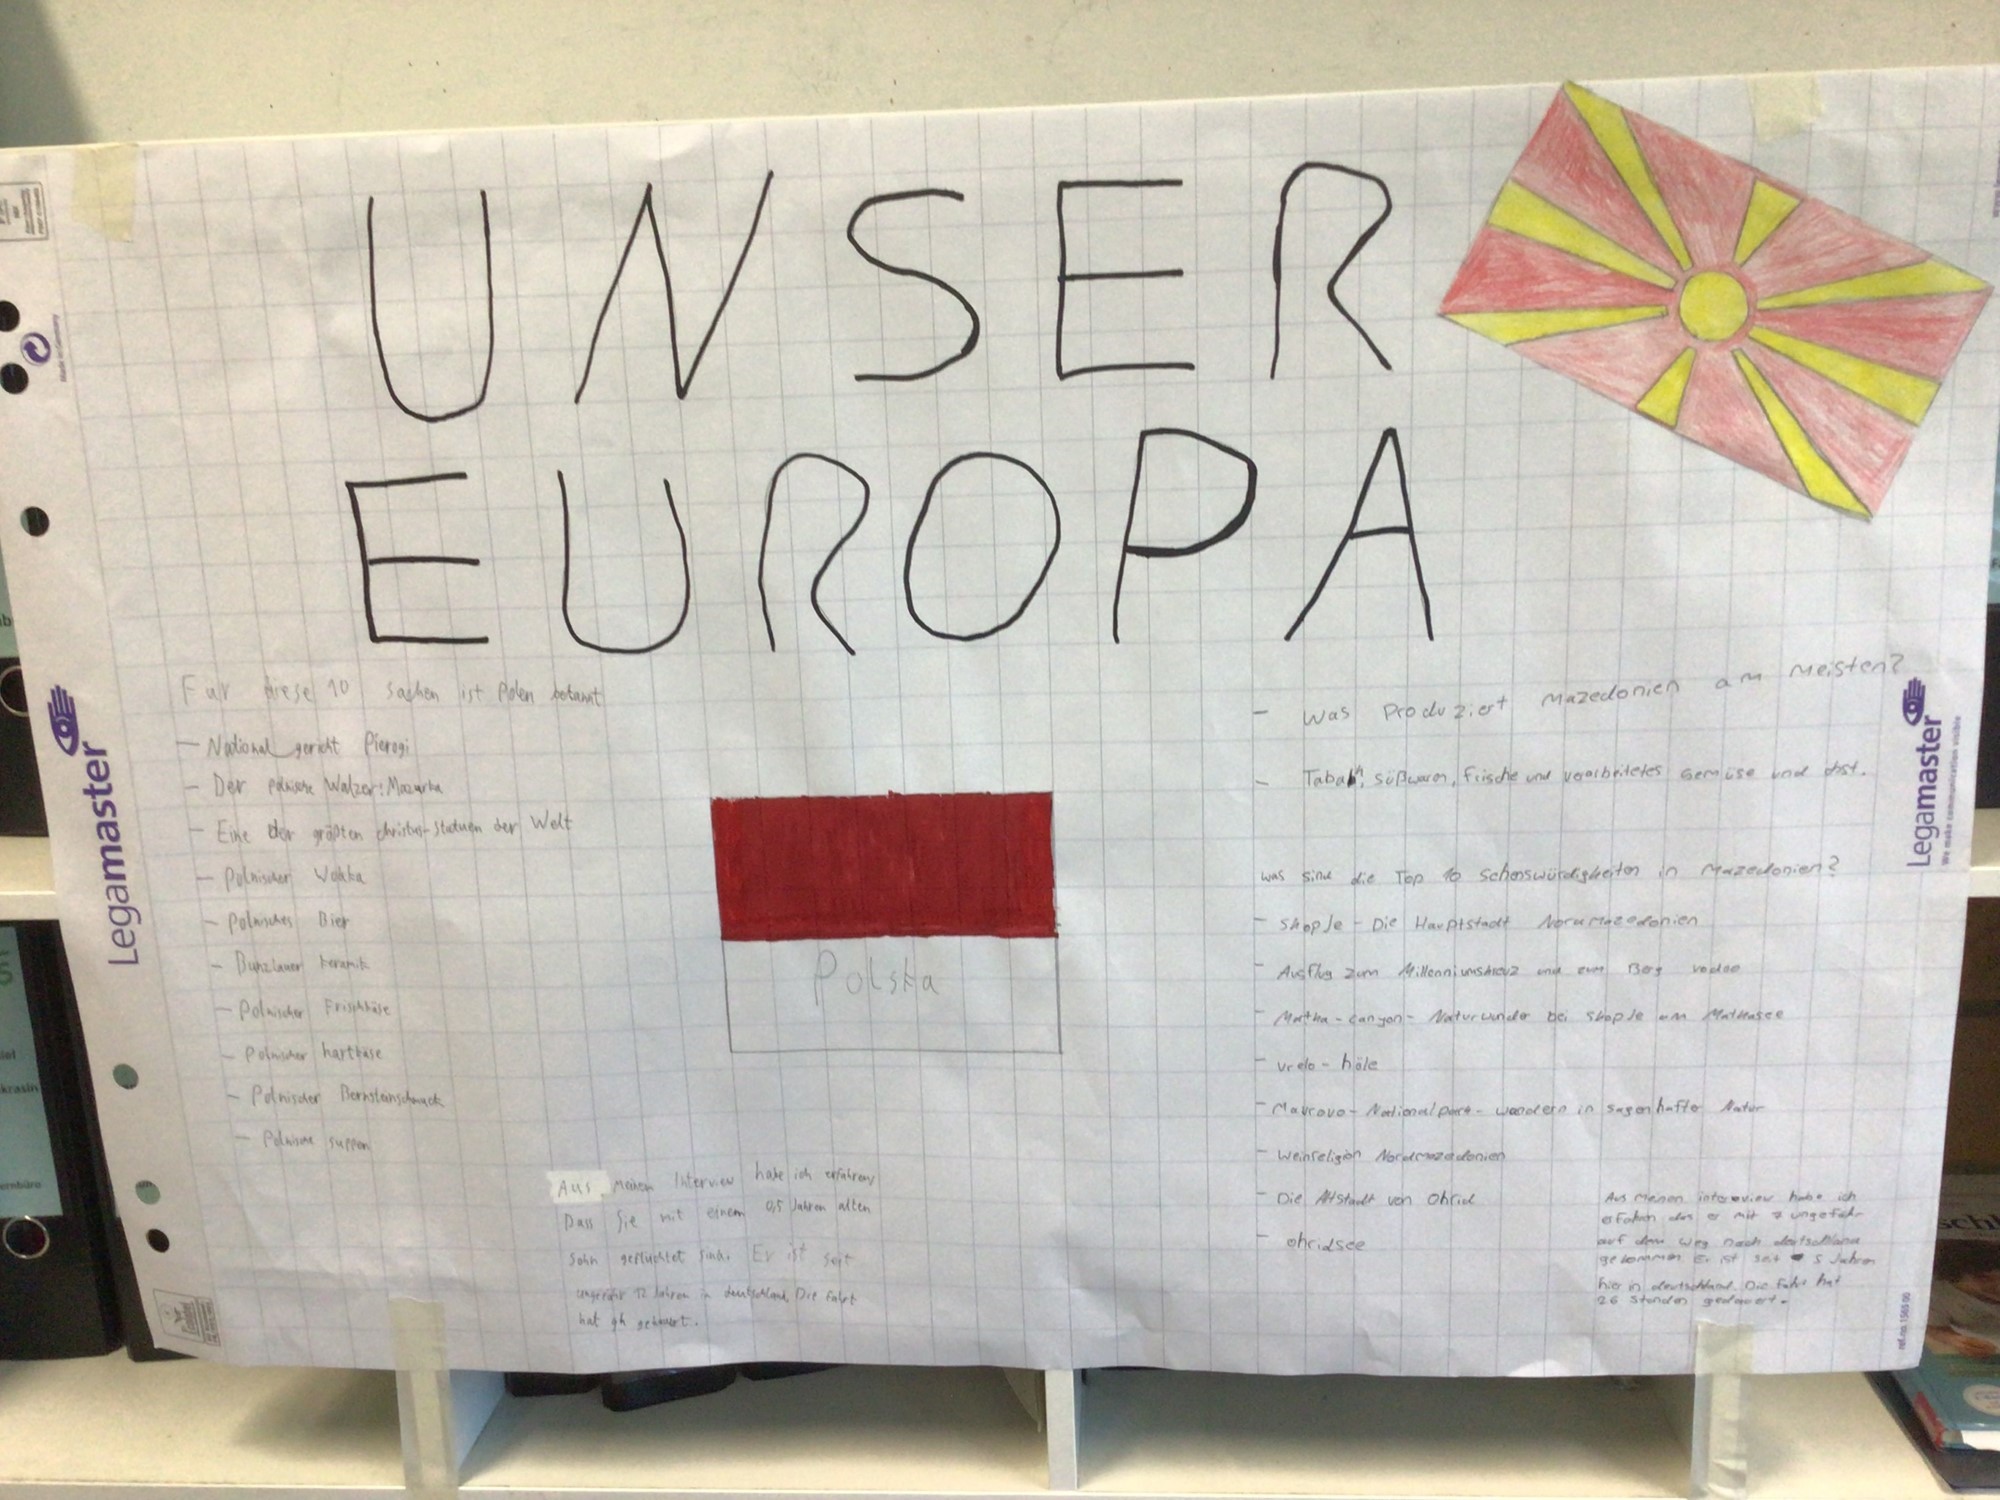 UNSER
EUROPA
Für diese 10 sachen ist Polen bekannt
– National gericht Pierogi
– Der polnische Walzer: Mazurka
– Eine der größten christus-statuen der Welt
– Polnischer Wodka
– Polnisches Bier
– Bunzlauer keramik
– Polnischer Frischkäse
– Polnischer hartkäse
– Polnischer Bernsteinschmuck
– Polnische suppen
Polska
Aus meinen Interview habe ich erfahren
Dass Sie mit einem 0,5 Jahren alten
Sohn geflüchtet sind. Er ist seit
ungefähr 12 Jahren in deutschland. Die Fahrt
hat 9h gedauert.
– Was Produziert Mazedonien am meisten?
– Tabak, süßwaren, frische und verarbeitetes Gemüse und
was sind die Top 10 Sehenswürdigkeiten in Mazedonien?
– Skopje – Die Hauptstadt Nordmazedonien
– Ausflug zum Millenniumskreuz und zum Berg vodno
– Matka – canyon – Naturwunder bei skopje am Matkasee
– vrelo – höle
– Mavrovo – Nationalpark – wandern in sagenhafter Natur
– Weinreligion Nordmazedonien
– Die Altstadt von Ohrid
– ohridsee
Aus meinen interview habe ich
erfahren das er mit 7 ungefähr
auf dem weg nach deutschland
gekommen Er ist seit 5 Jahren
hier in deutschland. Die Fahrt hat
26 Stunden gedauert.
Legamaster
Legamaster
We make communication visible
Made in Germany